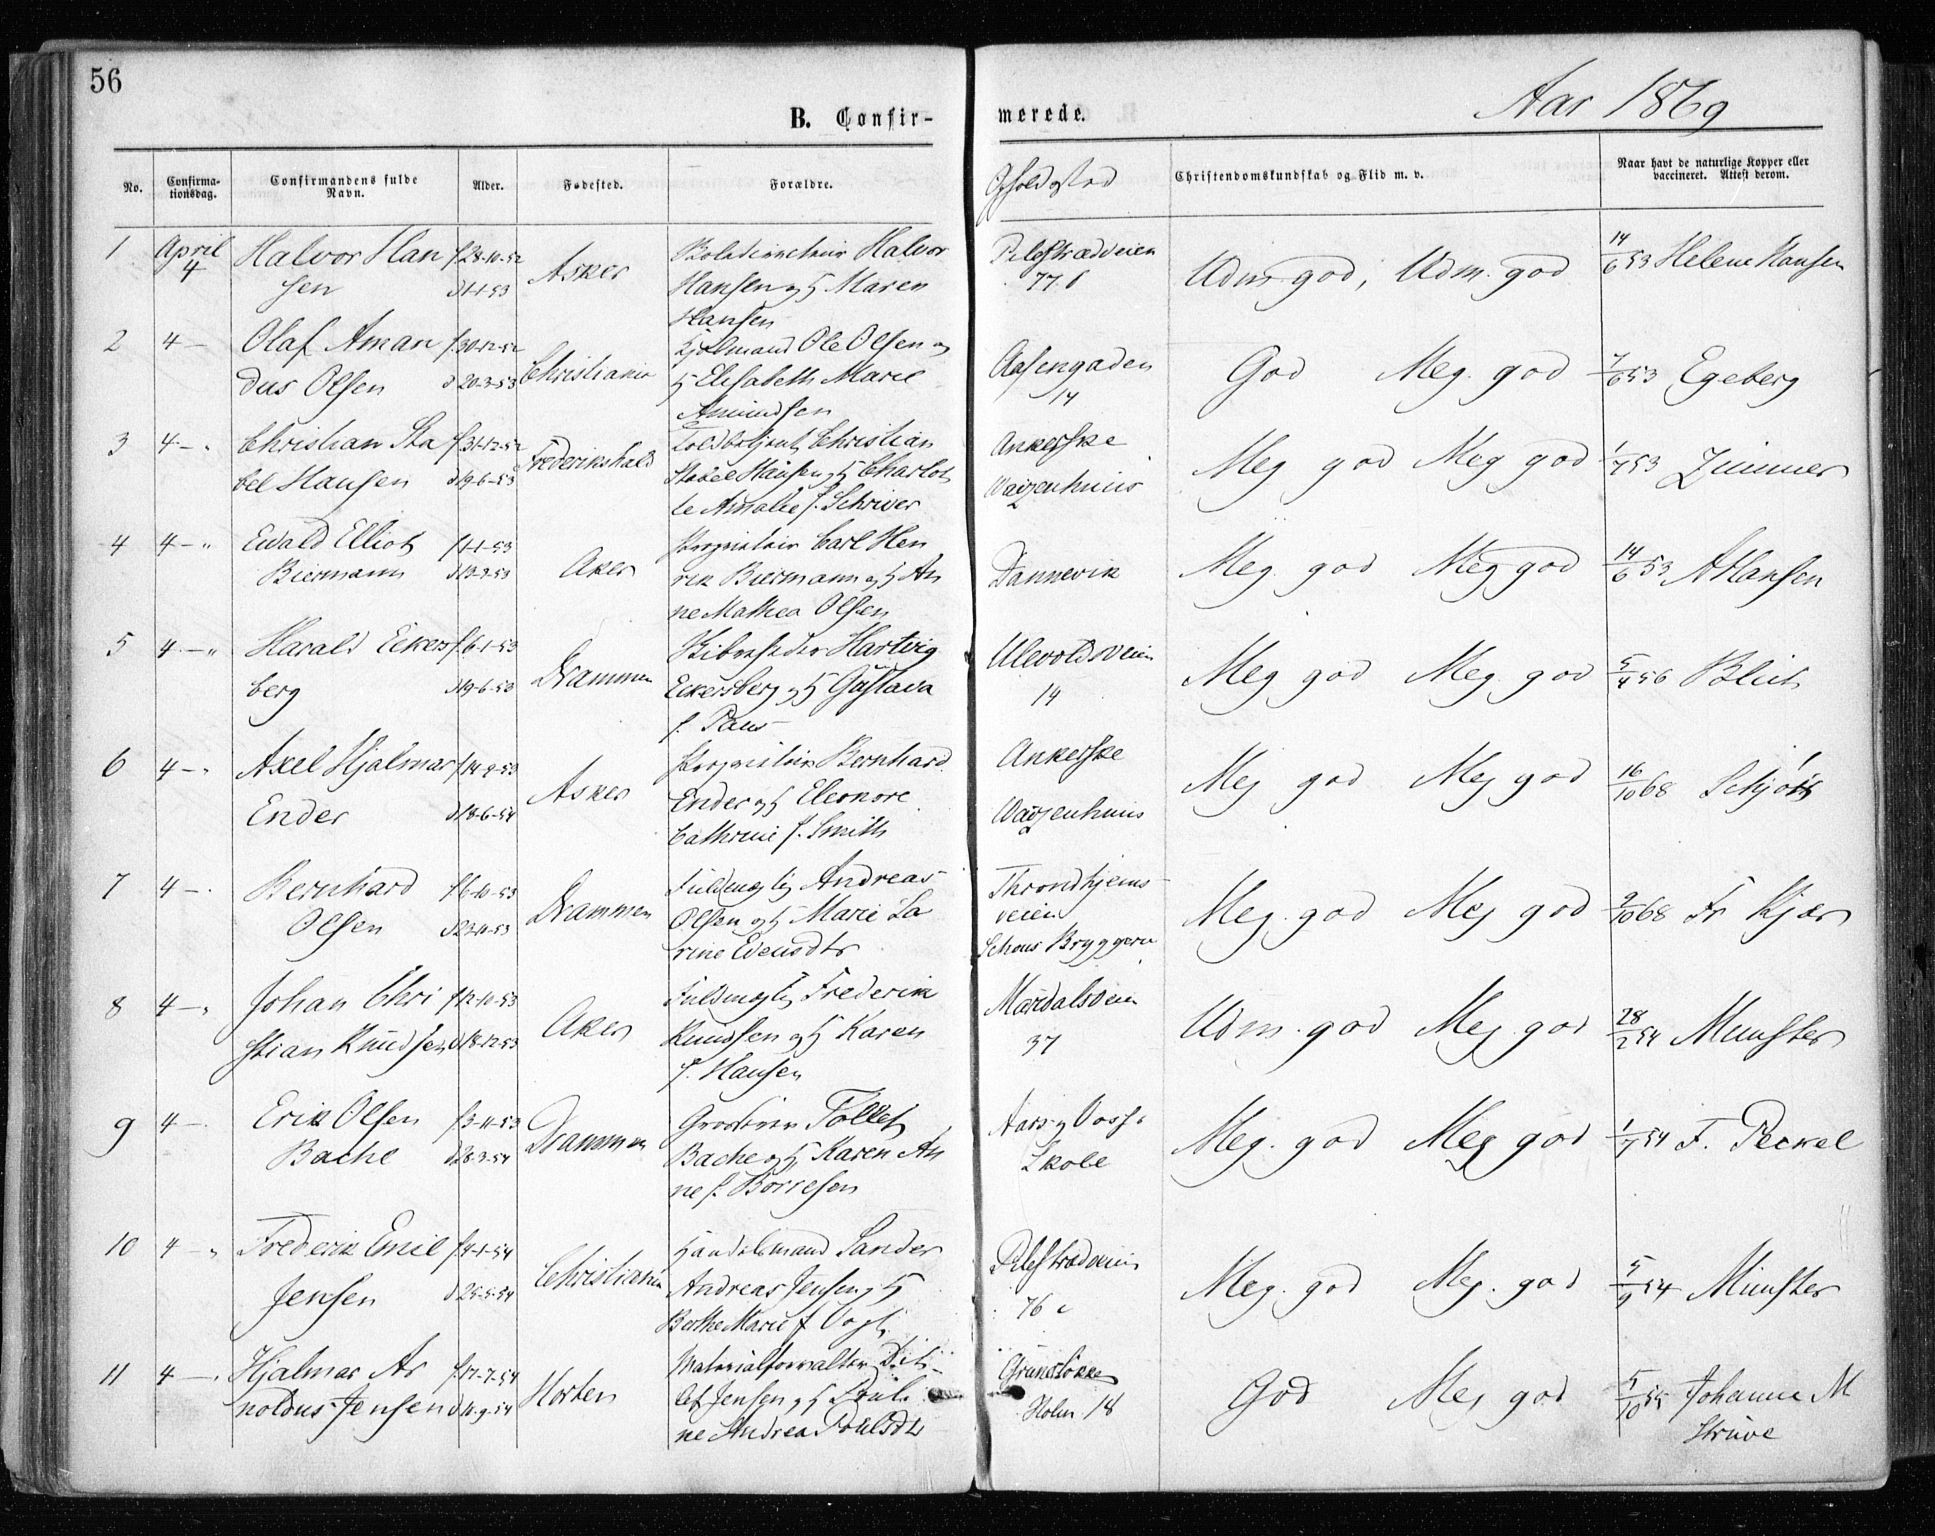 56
B. Confir-
merede.
Aar 1869
No.
Confirma-
tionsdag.
Confirmandens fulde
Navn.
Alder.
Fødested.
Forældre.
Opholdsstad
Christendomskundskab og Flid m. v.
Naar havt de naturlige Kopper eller
vaccineret. Attest derom.
1 April Halvor Han f 28-10-52 Halvor Pilestrædveien 14/6 53 Helene Hansen
4 sen d 1-1-53 Asker Hansen og H Maren 77 b Udm. god, Udm. god
Hansen
2 4 — Olaf Aman f 30-12-52 Christiania Ole Olsen og Aasengaden God Meg. god 7/6 53 Egeberg
dus Olsen d 20-3-53 H Elisabeth Marie 14
Amundsen
3 4 — " Christian Sta f 31-12-52 Frederikshald Christian Ankerske Meg god Meg god 1/7 53 Zimmer
bel Hansen d 19-6-53 Stabel Hansen og H Charlot Waizenhuus
te Amalie f. Schriver
4 4 — " Ewald Elliot f 1-1-53 Aker Carl Hen Dannevik Meg. god Meg god 14/6 53 A Hansen
Biermann d 13-2-53 rik Biermann og H An
ne Mathea Olsen
5 4 — " Harald Eckers f 6-1-53 Drammen Hartvig Ulevoldsveien Meg god Meg. god 5/4 56 Blich
berg d 19-6-53 Eckersberg og H Gustava 14
f. Paus
6 4 — " Axel Hjalmar f 14-2-53 Asker Bernhard Ankerske Meg god Meg god 16/10 68 Schjøtt
Ender d 18-6-54 Ender og H Eleonore Waizenhuus
Cathrine f. Smith
7 4 — " Bernhard f 6-10-53 Drammen Fuldmægtig Andreas Throndhjems- Meg. god Meg god 9/10 68 Fr Kjær
Olsen d 22-11-53 Olsen og H Marie La veien
rine Evensdtr Schous Bryggeri
8 4 — " Johan Chri f 12-10-53 Aker Fuldmægtig Frederik Maridalsveien Udm. god Meg. god 28/2 54 Munster
stian Knudsen d 18-12-53 Knudsen og H Karen 37
f. Hansen
9 4 — Erik Olsen f 3-11-53 Drammen Tollef Aars og Voss's Meg. god Meg god 1/7 54 F. Peckel
Bache d 28-3-54 Bache og H Karen An Skole
ne f. Borresen
10 4 — " Frederik Emil f 4-1-54 Christiania Handelsmand Sander Pilestrædveien Meg. god Meg. god 5/9 54 Münster
Jensen d 25-5-54 Andreas Jensen og H 76 c
Berthe Marie f Vogt
11 4 — " Hjalmar Ar f 17-7-54 Horten Materialforvalter Dit- Grünerløkken God Meg god 5/10 55 Johanne M
noldus Jensen d 11-9-54 lef Jensen og H Pauli Holm 18 Strüve
ne Andrea Povlsdtr